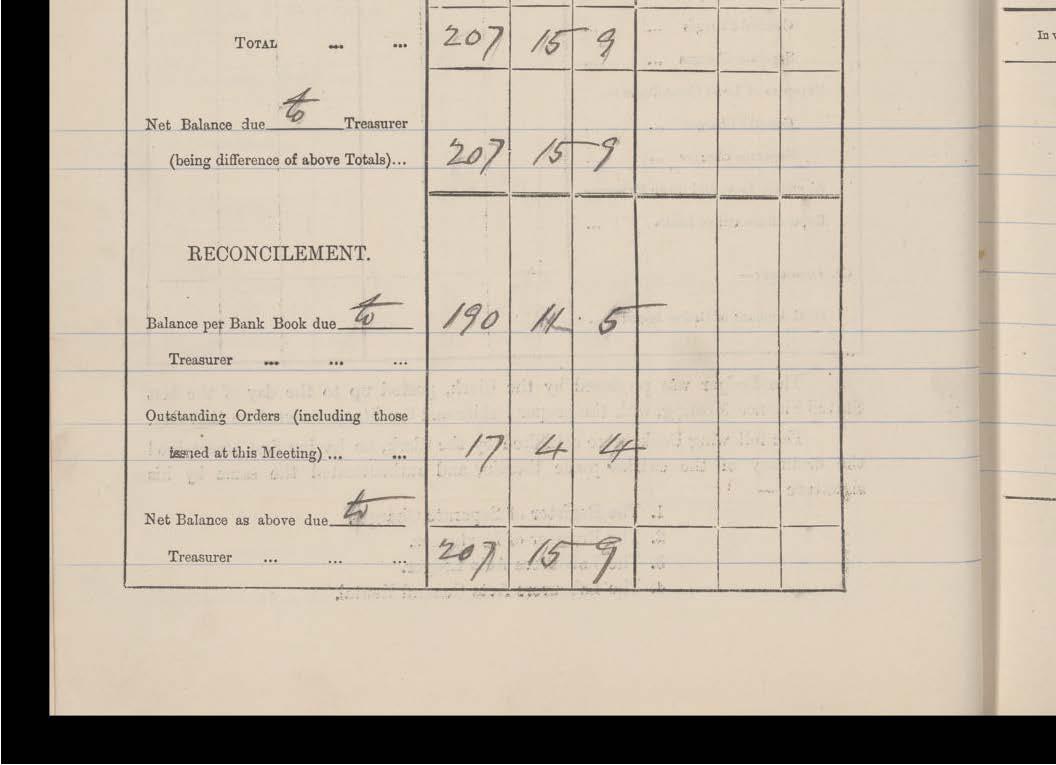 TOTAL ... ... 207 15 9
Net Balance due to Treasurer
(being difference of above Totals)... 207 15 9
RECONCILEMENT.
Balance per Bank Book due to 190 11 5
Treasurer ... ... ...
Outstanding Orders (including those
issued at this Meeting) ... ... 17 4 4
Net Balance as above due to
Treasurer ... ... ... 207 15 9
In